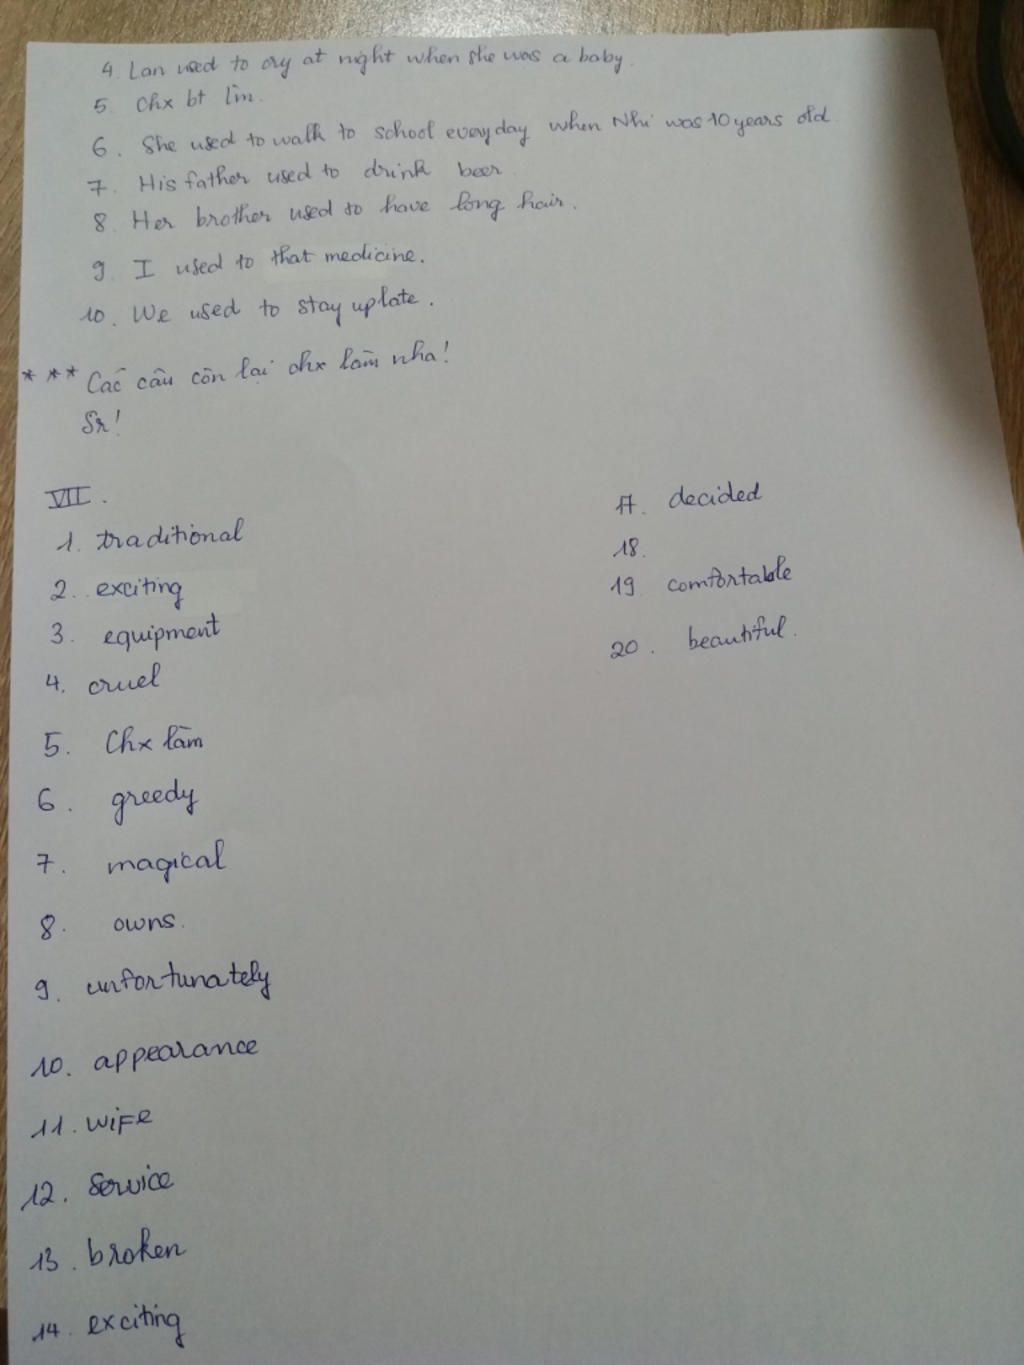 4. Lan used to cry at night when she was a baby.
5. Chx bt lm.
6. She used to walk to school everyday when Nhi was 10 years old
7. His father used to drink beer
8. Her brother used to have long hair.
9. I used to that medicine.
10. We used to stay up late.
*** Các câu còn lại chx làm nha!
Sr!
VII.
1. traditional
2. exciting
3. equipment
4. cruel
5. Chx làm
6. greedy
7. magical
8. owns.
9. unfortunately
10. appearance
11. wife
12. Service
13. broken
14. exciting
17. decided
18.
19 comfortable
20. beautiful.